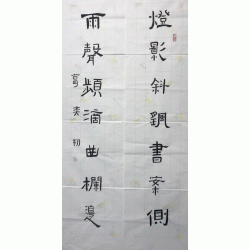 燈影斜鋪書案側
雨聲頻滴曲欄邊